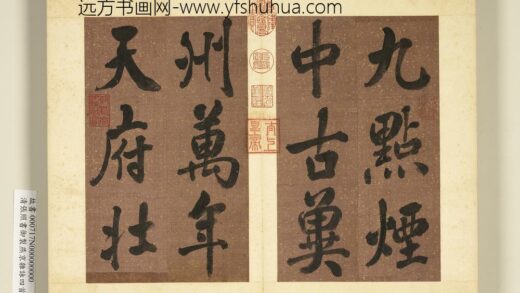 远方书画网-www.yfshuhua.com
九點煙
中古冀
州萬年
天府壯
故書 000717N000000000
清張照書御製燕京雜詠四首